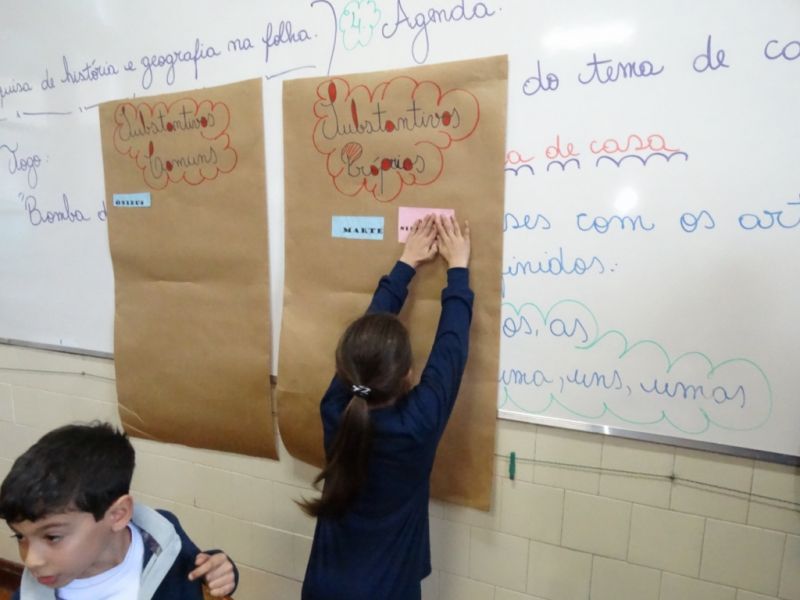 quisa de história e geografia na folha.
4 Agenda.
Jogo:
"Bomba d
Substantivos
Comuns
ÔNIBUS
Substantivos
Próprios
MARTE
do tema de ca
a de casa
ses com os art
finidos:
os, as
uma, uns, umas